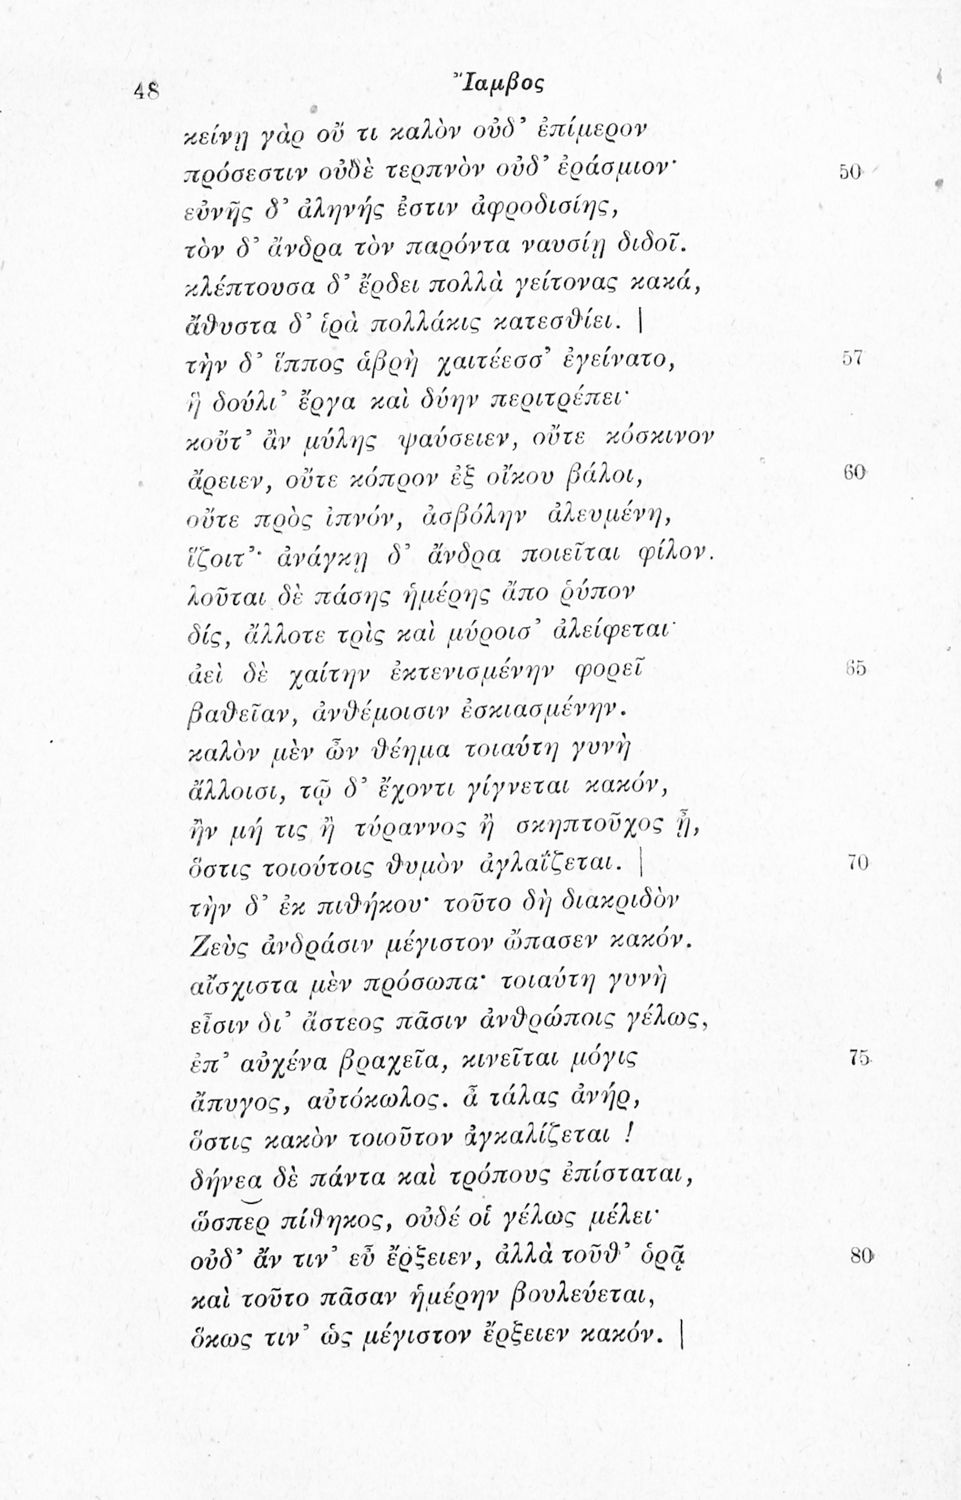 48 Ἴαμβος
κείνῃ γὰρ οὔ τι καλὸν οὐδ’ ἐπίμερον
πρόσεστιν οὐδὲ τερπνὸν οὐδ’ ἐράσμιον· 50
εὐνῆς δ’ ἀληνής ἐστιν ἀφροδισίης,
τὸν δ’ ἄνδρα τὸν παρόντα ναυσίῃ διδοῖ.
κλέπτουσα δ’ ἔρδει πολλὰ γείτονας κακά,
ἄθυστα δ’ ἱρὰ πολλάκις κατεσθίει. |
τὴν δ’ ἵππος ἁβρὴ χαιτέεσσ’ ἐγείνατο, 57
ἣ δούλι’ ἔργα καὶ δύην περιτρέπει·
κοὔτ’ ἂν μύλης ψαύσειεν, οὔτε κόσκινον
ἄρειεν, οὔτε κόπρον ἐξ οἴκου βάλοι, 60
οὔτε πρὸς ἰπνόν, ἀσβόλην ἀλευμένη,
ἵζοιτ’· ἀνάγκῃ δ’ ἄνδρα ποιεῖται φίλον.
λοῦται δὲ πάσης ἡμέρης ἄπο ῥύπον
δίς, ἄλλοτε τρὶς καὶ μύροισ’ ἀλείφεται·
ἀεὶ δὲ χαίτην ἐκτενισμένην φορεῖ 65
βαθεῖαν, ἀνθέμοισιν ἐσκιασμένην.
καλὸν μὲν ὦν θέημα τοιαύτη γυνὴ
ἄλλοισι, τῷ δ’ ἔχοντι γίγνεται κακόν,
ἢν μή τις ἢ τύραννος ἢ σκηπτοῦχος ᾖ,
ὅστις τοιούτοις θυμὸν ἀγλαΐζεται. | 70
τὴν δ’ ἐκ πιθήκου· τοῦτο δὴ διακριδὸν
Ζεὺς ἀνδράσιν μέγιστον ὤπασεν κακόν.
αἴσχιστα μὲν πρόσωπα· τοιαύτη γυνὴ
εἶσιν δι’ ἄστεος πᾶσιν ἀνθρώποις γέλως,
ἐπ’ αὐχένα βραχεῖα, κινεῖται μόγις 75
ἄπυγος, αὐτόκωλος. ἆ τάλας ἀνήρ,
ὅστις κακὸν τοιοῦτον ἀγκαλίζεται !
δήνεα δὲ πάντα καὶ τρόπους ἐπίσταται,
ὥσπερ πίθηκος, οὐδέ οἱ γέλως μέλει·
οὐδ’ ἄν τιν’ εὖ ἔρξειεν, ἀλλὰ τοῦθ’ ὁρᾷ 80
καὶ τοῦτο πᾶσαν ἡμέρην βουλεύεται,
ὅκως τιν’ ὡς μέγιστον ἔρξειεν κακόν. |